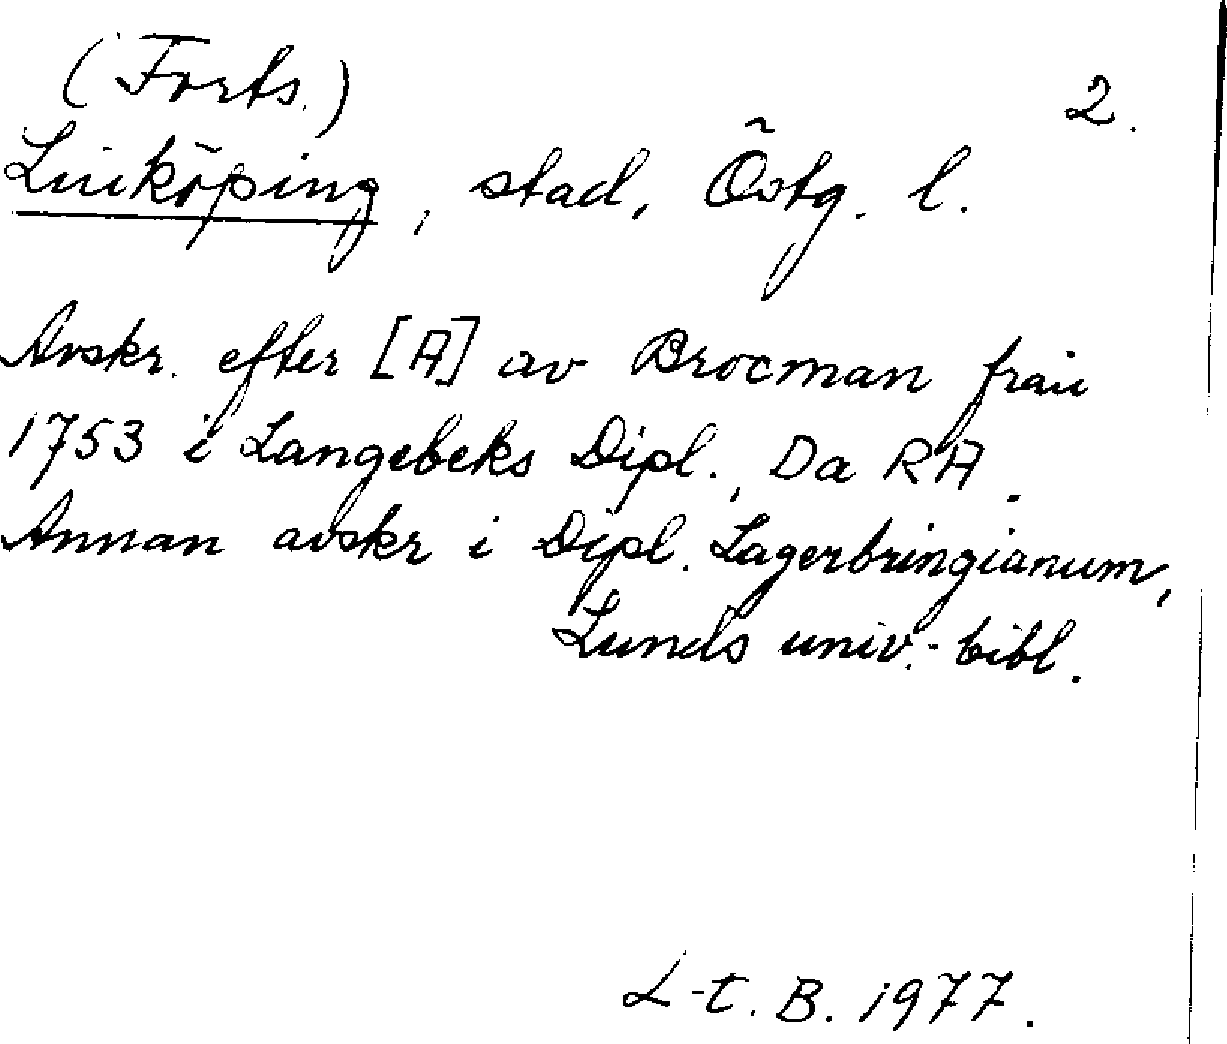 (Forts.) 2.
Linköping, stad, Östg. l.
Avskr. efter [A] av Brocman från
1753 i Langebeks Dipl., Da RA.
Annan avskr i Dipl. Lagerbringianum,
Lunds univ.-bibl.
L-t. B. 1977.